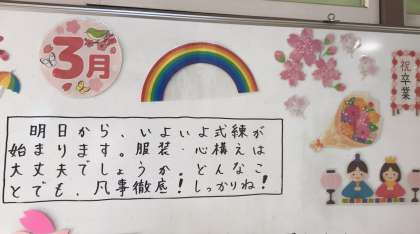 3月
祝卒業
明日から、いよいよ式練が
始まります。服装・心構えは
大丈夫でしょうか。どんなこ
とでも、凡事徹底!しっかりね!